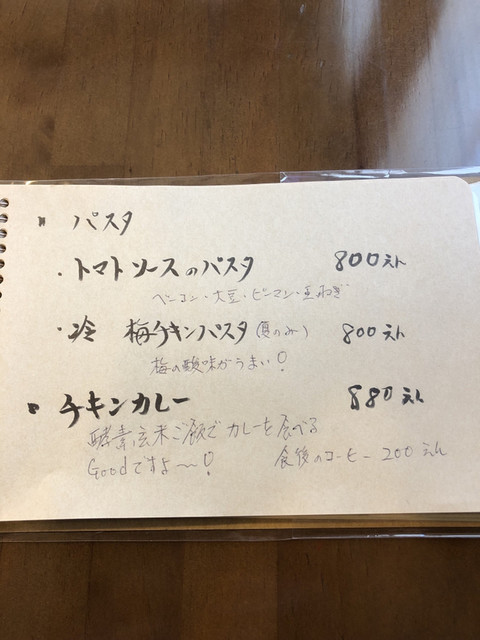 パスタ
・トマトソースのパスタ 800えん
ベーコン・大豆・ピーマン・玉ねぎ
・冷 梅チキンパスタ(夏のみ) 800えん
梅の酸味がうまい!
チキンカレー 880えん
酵素玄米ご飯でカレーを食べる
Goodですよ〜! 食後のコーヒー200えん